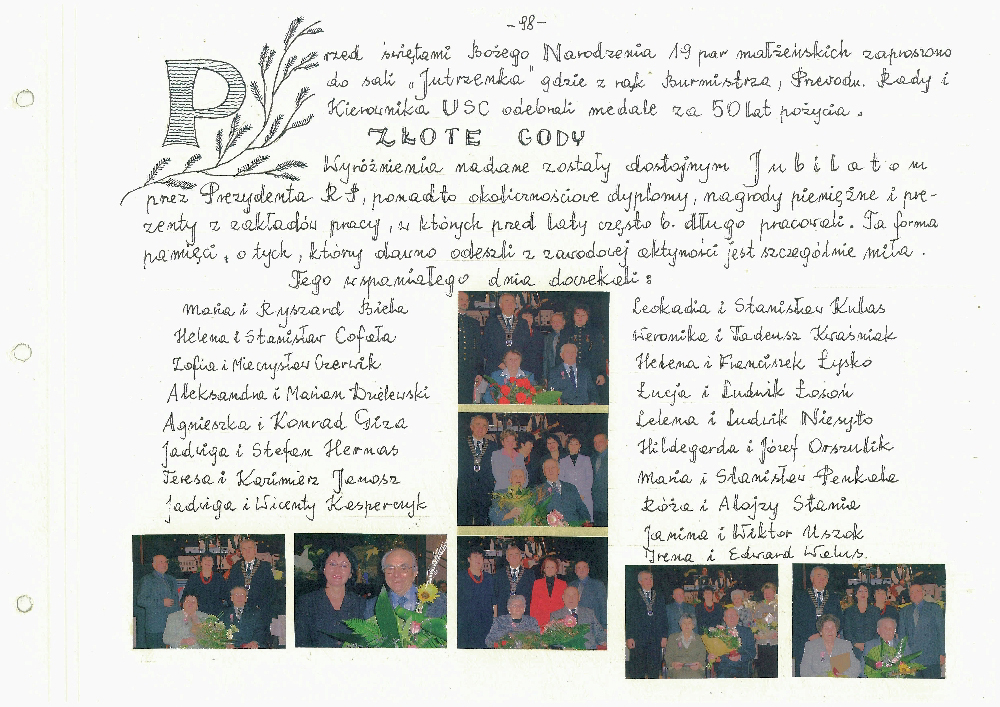 -98-
Przed świętami Bożego Narodzenia 19 par małżeńskich zaproszono
do sali „Jutrzenka" gdzie z rąk Burmistrza, Przewodn. Rady i
Kierownika USC odebrali medale za 50 lat pożycia.
ZŁOTE GODY
Wyróżnienia nadane zostały dostojnym Jubilatom
przez Prezydenta RP, ponadto okolicznościowe dyplomy, nagrody pieniężne i pre-
zenty z zakładów pracy, w których przed laty często b. długo pracowali. Ta forma
pamięci, o tych, którzy dawno odeszli z zawodowej aktyności jest szczególnie miła.
Tego wspaniałego dnia doczekali:
Maria i Ryszard Biela
Helena i Stanisław Cofała
Zofia i Mieczysław Czerwik
Aleksandra i Marian Dzielewski
Agnieszka i Konrad Giza
Jadwiga i Stefan Hernas
Teresa i Kazimierz Janosz
Jadwiga i Wicenty Kasperczyk
Leokadia i Stanisław Kulas
Weronika i Tadeusz Kwaśniak
Helena i Franciszek Łysko
Łucja i Ludwik Łosoń
Lelena i Ludwik Niesyto
Hildegarda i Józef Orszulik
Maria i Stanisław Penkala
Róża i Alojzy Stania
Janina i Wiktor Uszok
Irena i Edward Walus.